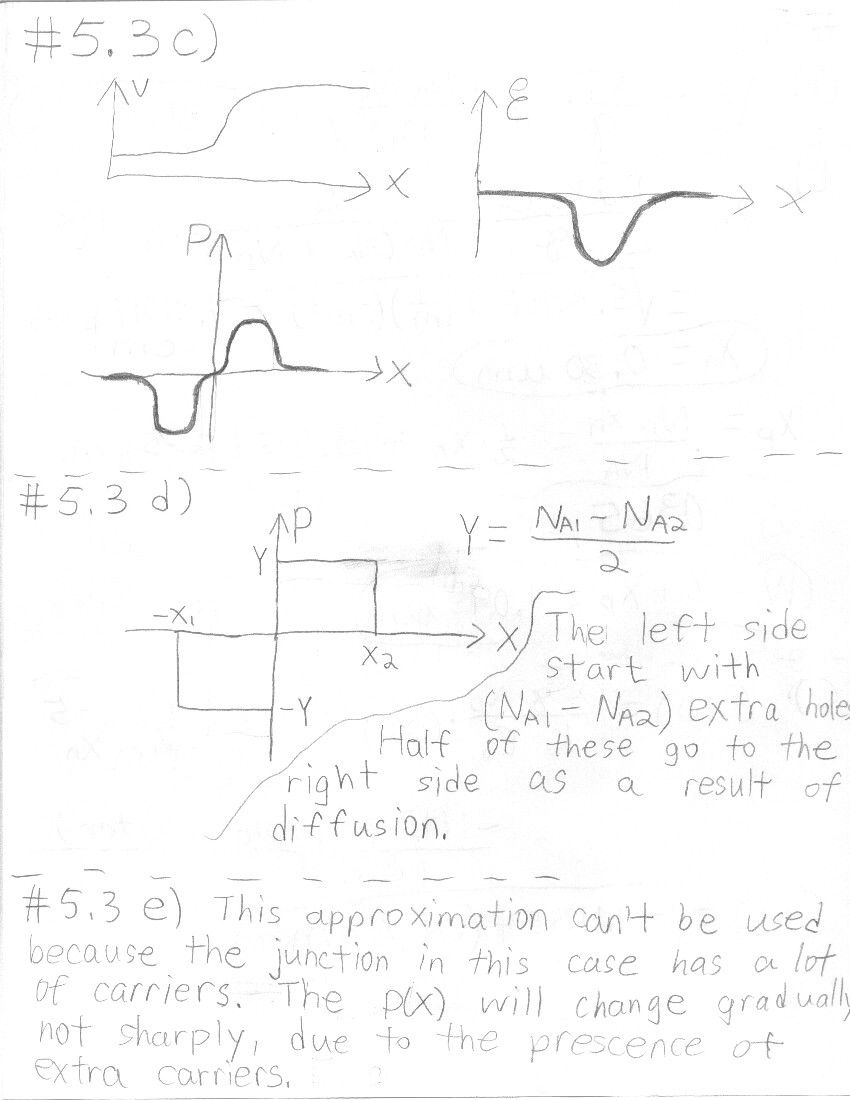 #5.3c)
V
X
Ɛ
X
P
X
#5.3 d)
P
Y
-X₁
X₂
X
-Y
Y = (N_A1 - N_A2) / 2
The left side
start with
(N_A1 - N_A2) extra holes
Half of these go to the
right side as a result of
diffusion.
#5.3 e) This approximation can't be used
because the junction in this case has a lot
of carriers. The p(x) will change gradually
not sharply, due to the prescence of
extra carriers.